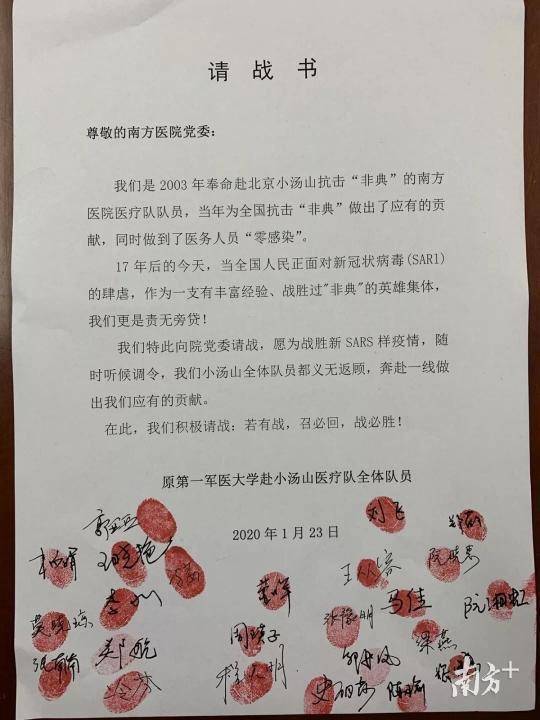 请战书
尊敬的南方医院党委：
我们是2003年奉命赴北京小汤山抗击“非典”的南方
医院医疗队队员，当年为全国抗击“非典”做出了应有的贡
献，同时做到了医务人员“零感染”。
17年后的今天，当全国人民正面对新冠状病毒(SARI)
的肆虐，作为一支有丰富经验、战胜过"非典"的英雄集体，
我们更是责无旁贷！
我们特此向院党委请战，愿为战胜新SARS样疫情，随
时听候调令，我们小汤山全体队员都义无返顾，奔赴一线做
出我们应有的贡献。
在此，我们积极请战：若有战，召必回，战必胜！
原第一军医大学赴小汤山医疗队全体队员
2020年1月23日
刘飞
马佳
张豫明
梁燕
南方+